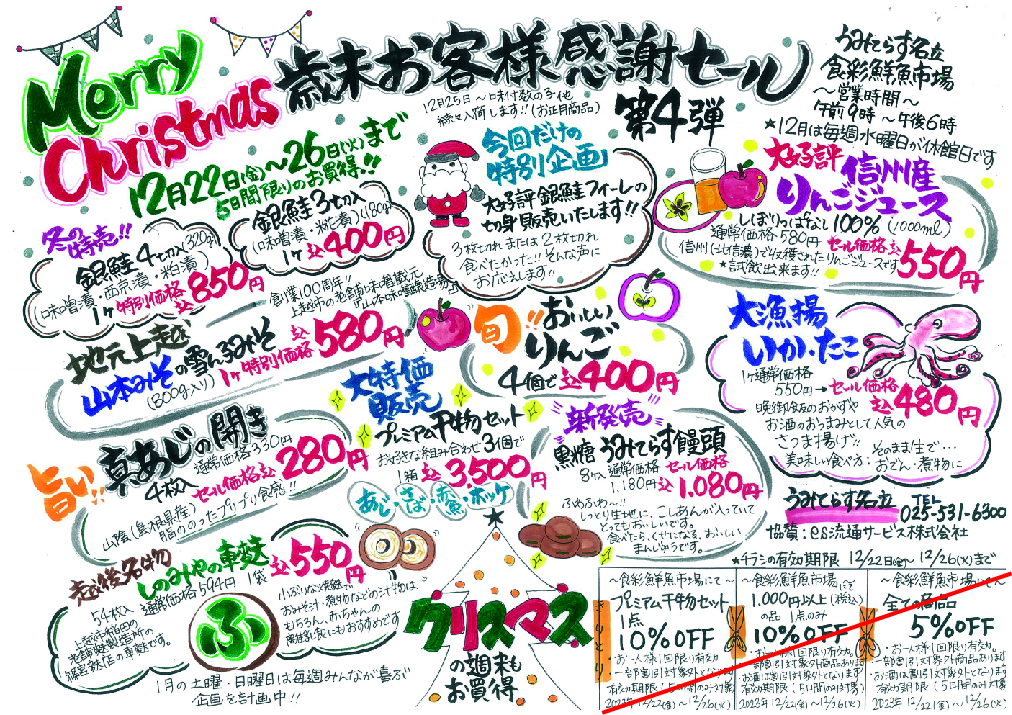 Merry
Christmas
歳末お客様感謝セール
第4弾
12月22日(金)〜26日(火)まで
5日間限りのお買得!!
うみてらす名立
食彩鮮魚市場
〜営業時間〜
午前9時〜午後6時
★12月は毎週水曜日が休館日です
冬の特売!!
銀鮭4切入(320g)
(味噌漬・西京漬・粕漬)
1ヶ特別価格込850円
銀鮭3切入
(味噌漬・粕漬)(180g)
1ヶ込400円
今回だけの
特別企画
大好評銀鮭フィーレの
切身販売いたします!!
3枚切れまたは2枚切れ
食べたかった!!そんな声に
お応えします!
大好評
信州産
りんごジュース
しぼりっぱなし100%(1000ml)
通常価格580円セール価格込550円
★試飲出来ます!!
創業100周年!!
地元上越
山本みその雪ん子みそ
(800g入り)1ヶ特別価格込580円
旬!!おいしい
りんご
4個で込400円
大漁揚
いか・たこ
1ヶ通常価格
550円→セール価格
込480円
晩御飯のおかずや
お酒のおつまみとして人気の
さつま揚げ!!
そのまま生で…
美味しい食べ方:おでん・煮物に
旨い!!
真あじの開き
4枚入
通常価格330円
セール価格込280円
山陰(島根県産)
脂ののったプリプリ食感!!
大特価
販売
プレミアム干物セット
お好きな組み合わせ3個で
1箱込3,500円
あじ・さば・赤魚・ホッケ
新発売
黒糖うみてらす饅頭
8ヶ入通常価格
1,180円→セール価格
込1,080円
ふわふわ〜!
しっとり生地に、こしあんが入っていて
とってもおいしいです。
食べたら、くせになる、おいしい
まんじゅうです。
うみてらす名立
TEL
025-531-6300
協賛:es流通サービス株式会社
★チラシの有効期限12/22(金)〜12/26(火)まで
越後名物
しのみやの車麩
54枚入通常価格594円1袋込550円
ふ
もちろん、赤ちゃんの
離乳食にもおすすめです
クリスマス
の週末も
お買得
1月の土曜・日曜日は毎週みんなが喜ぶ
企画を計画中!!
〜食彩鮮魚市場にて〜
プレミアム干物セット
1点
10%OFF
・お一人様1回限り有効
・一部割引対象外となります
有効期限(5日間のみ対象)
2023年12/22(金)〜12/26(火)
〜食彩鮮魚市場にて〜
1,000円以上(税込)
の品1点のみ
10%OFF
・お一人様1回限り有効。
・一部割引対象外商品あり
お酒は割引対象外となります
有効期限(5日間のみ対象)
2023年12/22(金)〜12/26(火)
〜食彩鮮魚市場にて〜
全ての商品
5%OFF
・お一人様1回限り有効。
・一部割引対象外商品あります
お酒は割引対象外となります
有効期限(5日間のみ対象)
2023年12/22(金)〜12/26(火)